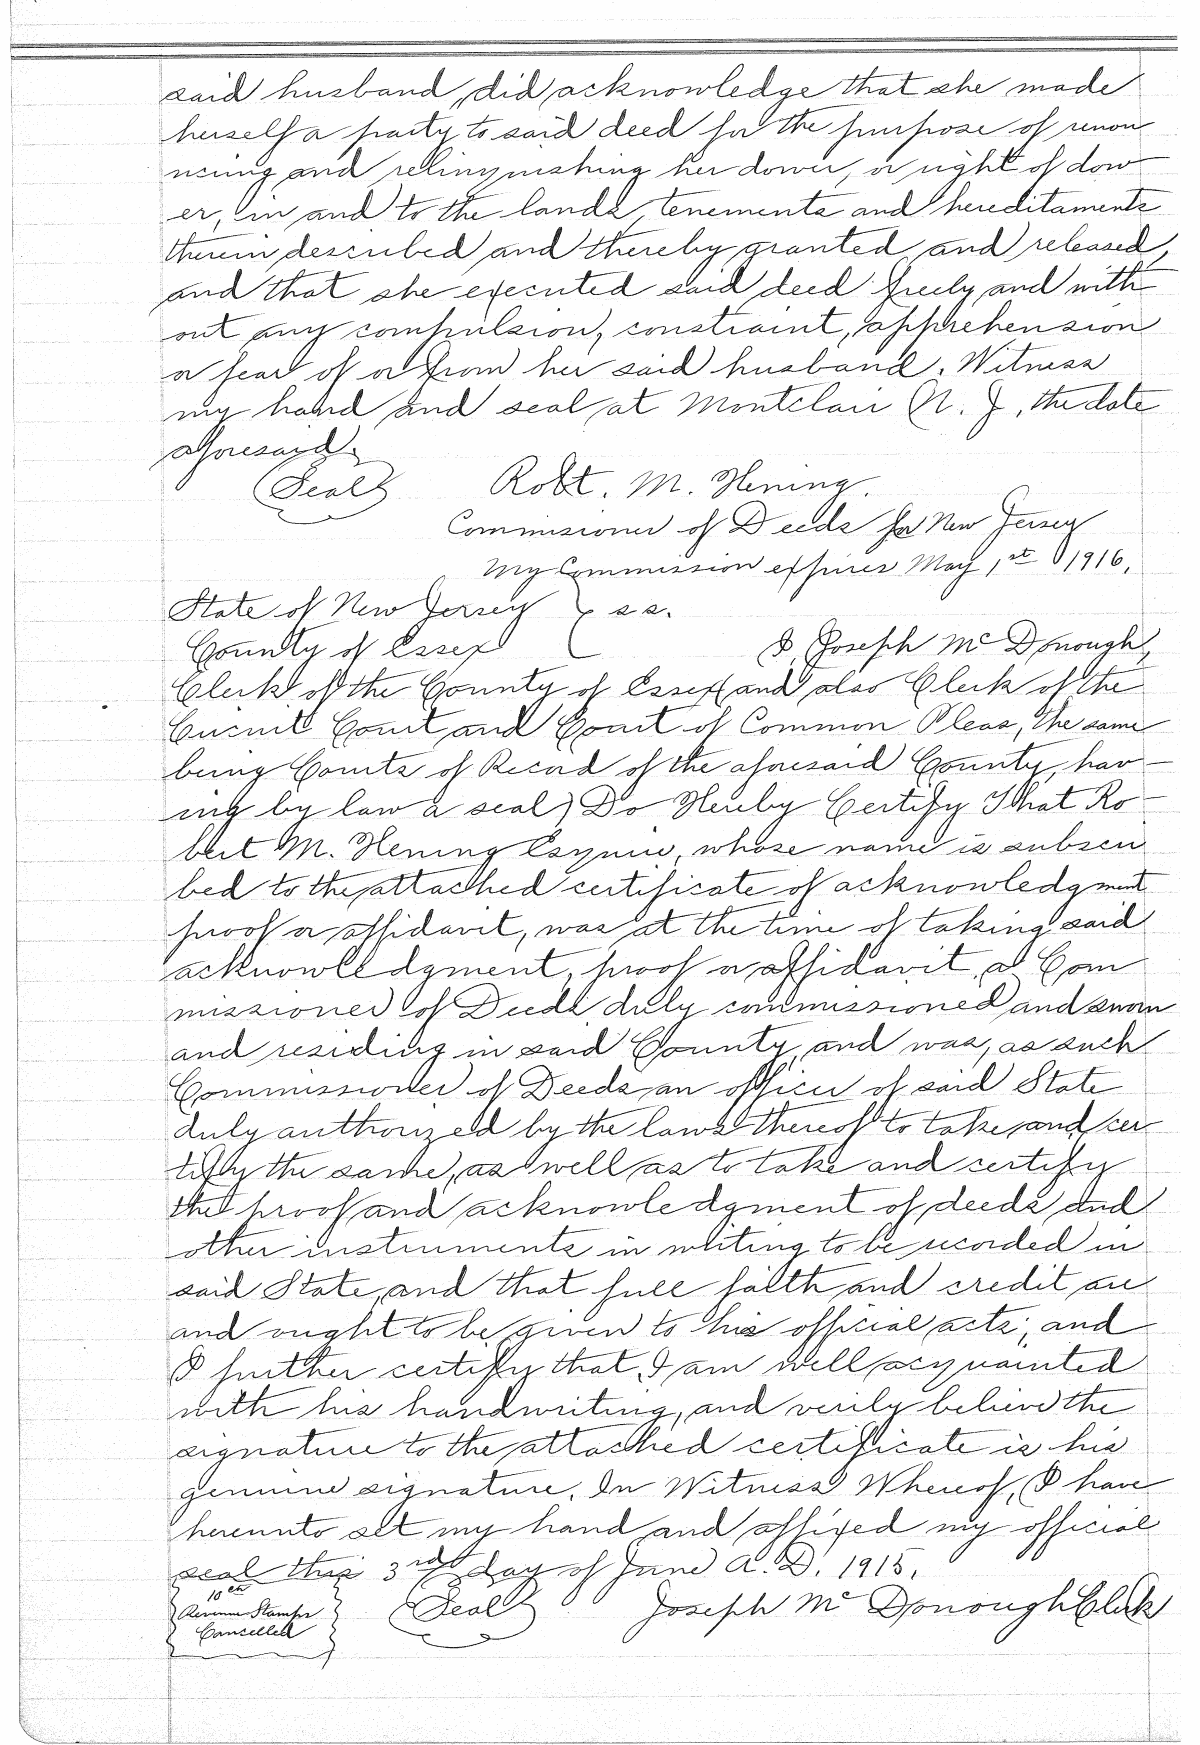 said husband, did acknowledge that she made
herself a party to said deed for the purpose of renou
ncing and relinquishing her dower, or right of dow
er, in and to the lands, tenements and hereditaments
therein described and thereby granted and released,
and that she executed said deed freely and with
out any compulsion, constraint, apprehension
or fear of or from her said husband. Witness
my hand and seal at Montclair N. J., the date
aforesaid.
(Seal) Robt. M. Hening.
Commisioner of Deeds for New Jersey
My Commission expires May 1st 1916.
State of New Jersey } ss.
County of Essex I, Joseph Mc Donough,
Clerk of the County of Essex (and also Clerk of the
Circuit Court and Court of Common Pleas, the same
being Courts of Record of the aforesaid County, hav-
ing by law a seal) Do Hereby Certify That Ro-
bert M. Hening Esquire, whose name is subscri
bed to the attached certificate of acknowledgment
proof or affidavit, was at the time of taking said
acknowledgment, proof or affidavit, a Com
missioner of Deeds duly commissioned and sworn
and residing in said County, and was, as such
Commissioner of Deeds an officer of said State
duly authorized by the laws thereof to take and cer
tify the same, as well as to take and certify
the proof and acknowledgment of deeds and
other instruments in writing to be recorded in
said State, and that full faith and credit are
and ought to be given to his official acts; and
I further certify that I am well acquainted
with his handwriting, and verily believe the
signature to the attached certificate is his
genuine signature. In Witness Whereof, I have
hereunto set my hand and affixed my official
seal this 3rd day of June A. D. 1915.
10 cts
Revenue Stamps
Cancelled
(Seal) Joseph Mc Donough Clerk